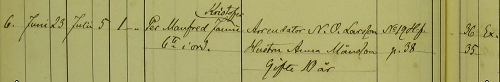 Kristofer
6. Juni 23 Julii 5 1 Per Manfred Janne Arrendator N. O. Larsson No 19 36 Ex.
6te i ord. Hustru Anna Månsson p. 38 35
Gifte 10 år